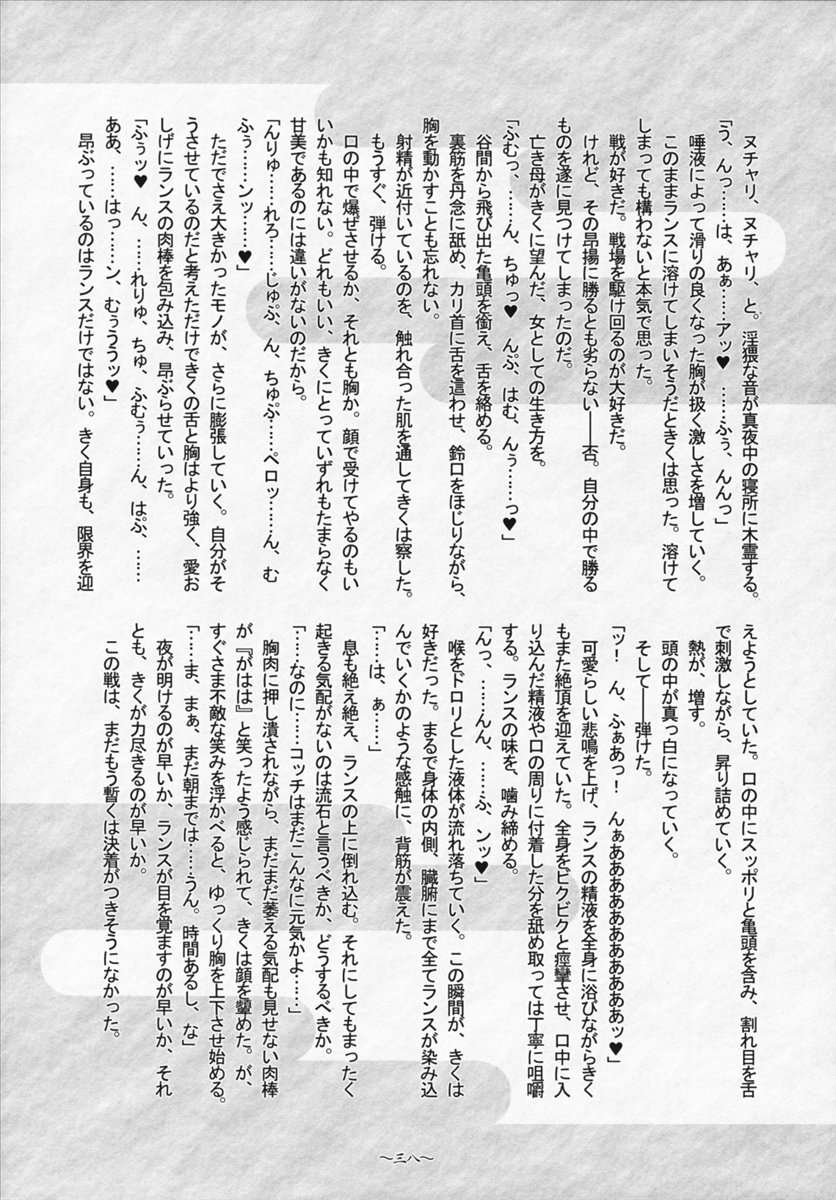 ヌチャリ、ヌチャリ、と。淫猥な音が真夜中の寝所に木霊する。
「う、んっ……は、あぁ……アッ♥　……ふぅ、んんっ」
唾液によって滑りの良くなった胸が扱く激しさを増していく。
このままランスに溶けてしまいそうだときくは思った。溶けて
しまっても構わないと本気で思った。
戦が好きだ。戦場を駆け回るのが大好きだ。
けれど、その昂揚に勝るとも劣らない――否。自分の中で勝る
ものを遂に見つけてしまったのだ。
亡き母がきくに望んだ、女としての生き方を。
「ふむっ、……ん、ちゅっ♥　んぷ、はむ、んぅ……っ♥」
谷間から飛び出た亀頭を銜え、舌を絡める。
裏筋を丹念に舐め、カリ首に舌を這わせ、鈴口をほじりながら、
胸を動かすことも忘れない。
射精が近付いているのを、触れ合った肌を通してきくは察した。
もうすぐ、弾ける。
口の中で爆ぜさせるか、それとも胸か。顔で受けてやるのもい
いかも知れない。どれもいい、きくにとっていずれもたまらなく
甘美であるのには違いがないのだから。
「んりゅ……れろ……じゅぷ、ん、ちゅぷ……ペロッ……ん、む
ふぅ……ンッ……♥」
ただでさえ大きかったモノが、さらに膨張していく。自分がそ
うさせているのだと考えただけできくの舌と胸はより強く、愛お
しげにランスの肉棒を包み込み、昂ぶらせていった。
「ふぅッ♥　ん、……れりゅ、ちゅ、ふむぅ……ん、はぷ、……
ああ、……はっ……ン、むぅううッ♥」
昂ぶっているのはランスだけではない。きく自身も、限界を迎
えようとしていた。口の中にスッポリと亀頭を含み、割れ目を舌
で刺激しながら、昇り詰めていく。
熱が、増す。
頭の中が真っ白になっていく。
そして――弾けた。
「ッ！　ん、ふぁあっ！　んぁあああああああああああッ♥」
可愛らしい悲鳴を上げ、ランスの精液を全身に浴びながらきく
もまた絶頂を迎えていた。全身をビクビクと痙攣させ、口中に入
り込んだ精液や口の周りに付着した分を舐め取っては丁寧に咀嚼
する。ランスの味を、噛み締める。
「んっ、……んん、……ふ、ンッ♥」
喉をドロリとした液体が流れ落ちていく。この瞬間が、きくは
好きだった。まるで身体の内側、臓腑にまで全てランスが染み込
んでいくかのような感触に、背筋が震えた。
「……は、ぁ……」
息も絶え絶え、ランスの上に倒れ込む。それにしてもまったく
起きる気配がないのは流石と言うべきか、どうするべきか。
「……なのに……コッチはまだこんなに元気かよ……」
胸肉に押し潰されながら、まだまだ萎える気配も見せない肉棒
が『がはは』と笑ったよう感じられて、きくは顔を顰めた。が、
すぐさま不敵な笑みを浮かべると、ゆっくり胸を上下させ始める。
「……ま、まぁ、まだ朝までは……うん。時間あるし、な」
夜が明けるのが早いか、ランスが目を覚ますのが早いか、それ
とも、きくが力尽きるのが早いか。
この戦は、まだもう暫くは決着がつきそうになかった。
～三八～